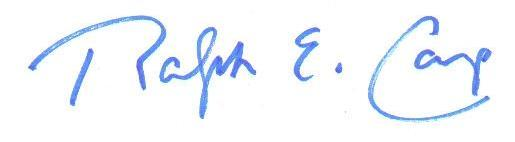 Ralph E. Carp